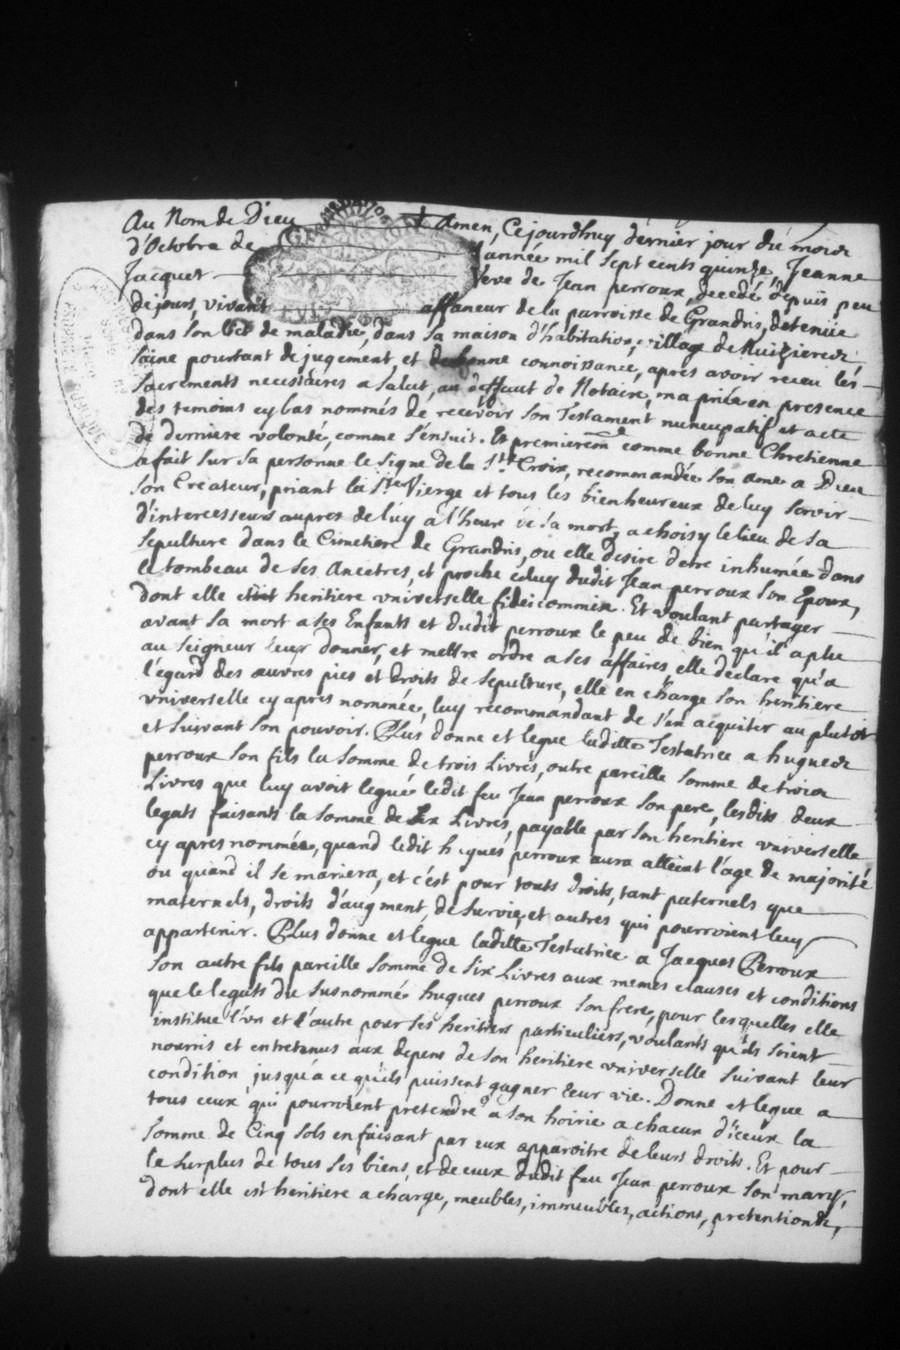 Au Nom de Dieu + Amen, Cejourdhuy dernier jour du mois
d'Octobre de l'année mil sept cents quinze, Jeanne
Jacquet veve de Jean perroux, decedé depuis peu
de jours, vivant affaneur de la parroisse de Grandris, detenüe
dans son lict de maladie, dans sa maison d'habitation, village de
saine pourtant de jugement et de bonne connoissance, aprés avoir receu les
sacrements necessaires a salut, au deffaut de Notaire, m'a priée en presence
des temoins cy bas nommés de recevoir son Testament nuncupatif et acte
de derniere volonté, comme s'ensuit. Et premierem̄ comme bonne Chretienne
a fait sur sa personne le signe de la Ste Croix, recommandée son ame a Dieu
son Createur, priant la Ste Vierge et tous les bienheureux de luy servir
d'intercesseurs aupres de luy a l'heure de sa mort, a choisy le lieu de sa
sepulture dans le Cimetiere de Grandris, ou elle desire d'etre inhumée dans
le tombeau de ses Ancetres, et proche celuy dudit Jean perroux son Epoux,
dont elle etoit heritiere universelle fideicommix. Et voulant partager
avant sa mort a ses Enfants et dudit perroux le peu de bien qu'il a plu
au seigneur leur donner, et mettre ordre a ses affaires elle declare qu'a
l'égard des œuvres pies et droits de sepulture, elle en charge son heritiere
universelle cy aprés nommée, luy recommandant de s'en acquiter au plutot
et suivant son pouvoir. Plus donne et legue laditte Testatrice a hugues
perroux son fils la somme de trois Livres, outre pareille somme de trois
Livres que luy avoit legué ledit feu Jean perroux son pere, lesdits deux
legats faisants la somme de six Livres, payable par son heritiere universelle
cy apres nommée, quand ledit hugues perroux aura atteint l'age de majorité
ou quand il se mariera, et c'est pour touts droits, tant paternels que
maternels, droits d'augment, de survie et autres qui pourroient luy
appartenir. Plus donne et legue laditte Testatrice a Jacques Perroux
son autre fils pareille somme de six Livres aux memes clauses et conditions
que le legats du susnommé hugues perroux son frere, pour lesquelles elle
institue l'un et l'autre pour ses heritiers particuliers, voulants qu'ils soient
nourris et entretenus aux depens de son heritiere universelle suivant leur
condition jusqu'a ce qu'ils puissent gagner leur vie. Donne et legue a
tous ceux qui pourroient pretendre a son hoirie a chacun d'iceux la
somme de Cinq sols en faisant par eux apparoitre de leurs droits. Et pour
le surplus de tous ses biens et de ceux dudit feu Jean perroux son mary,
dont elle est heritiere a charge, meubles, immeubles, actions, pretentions,